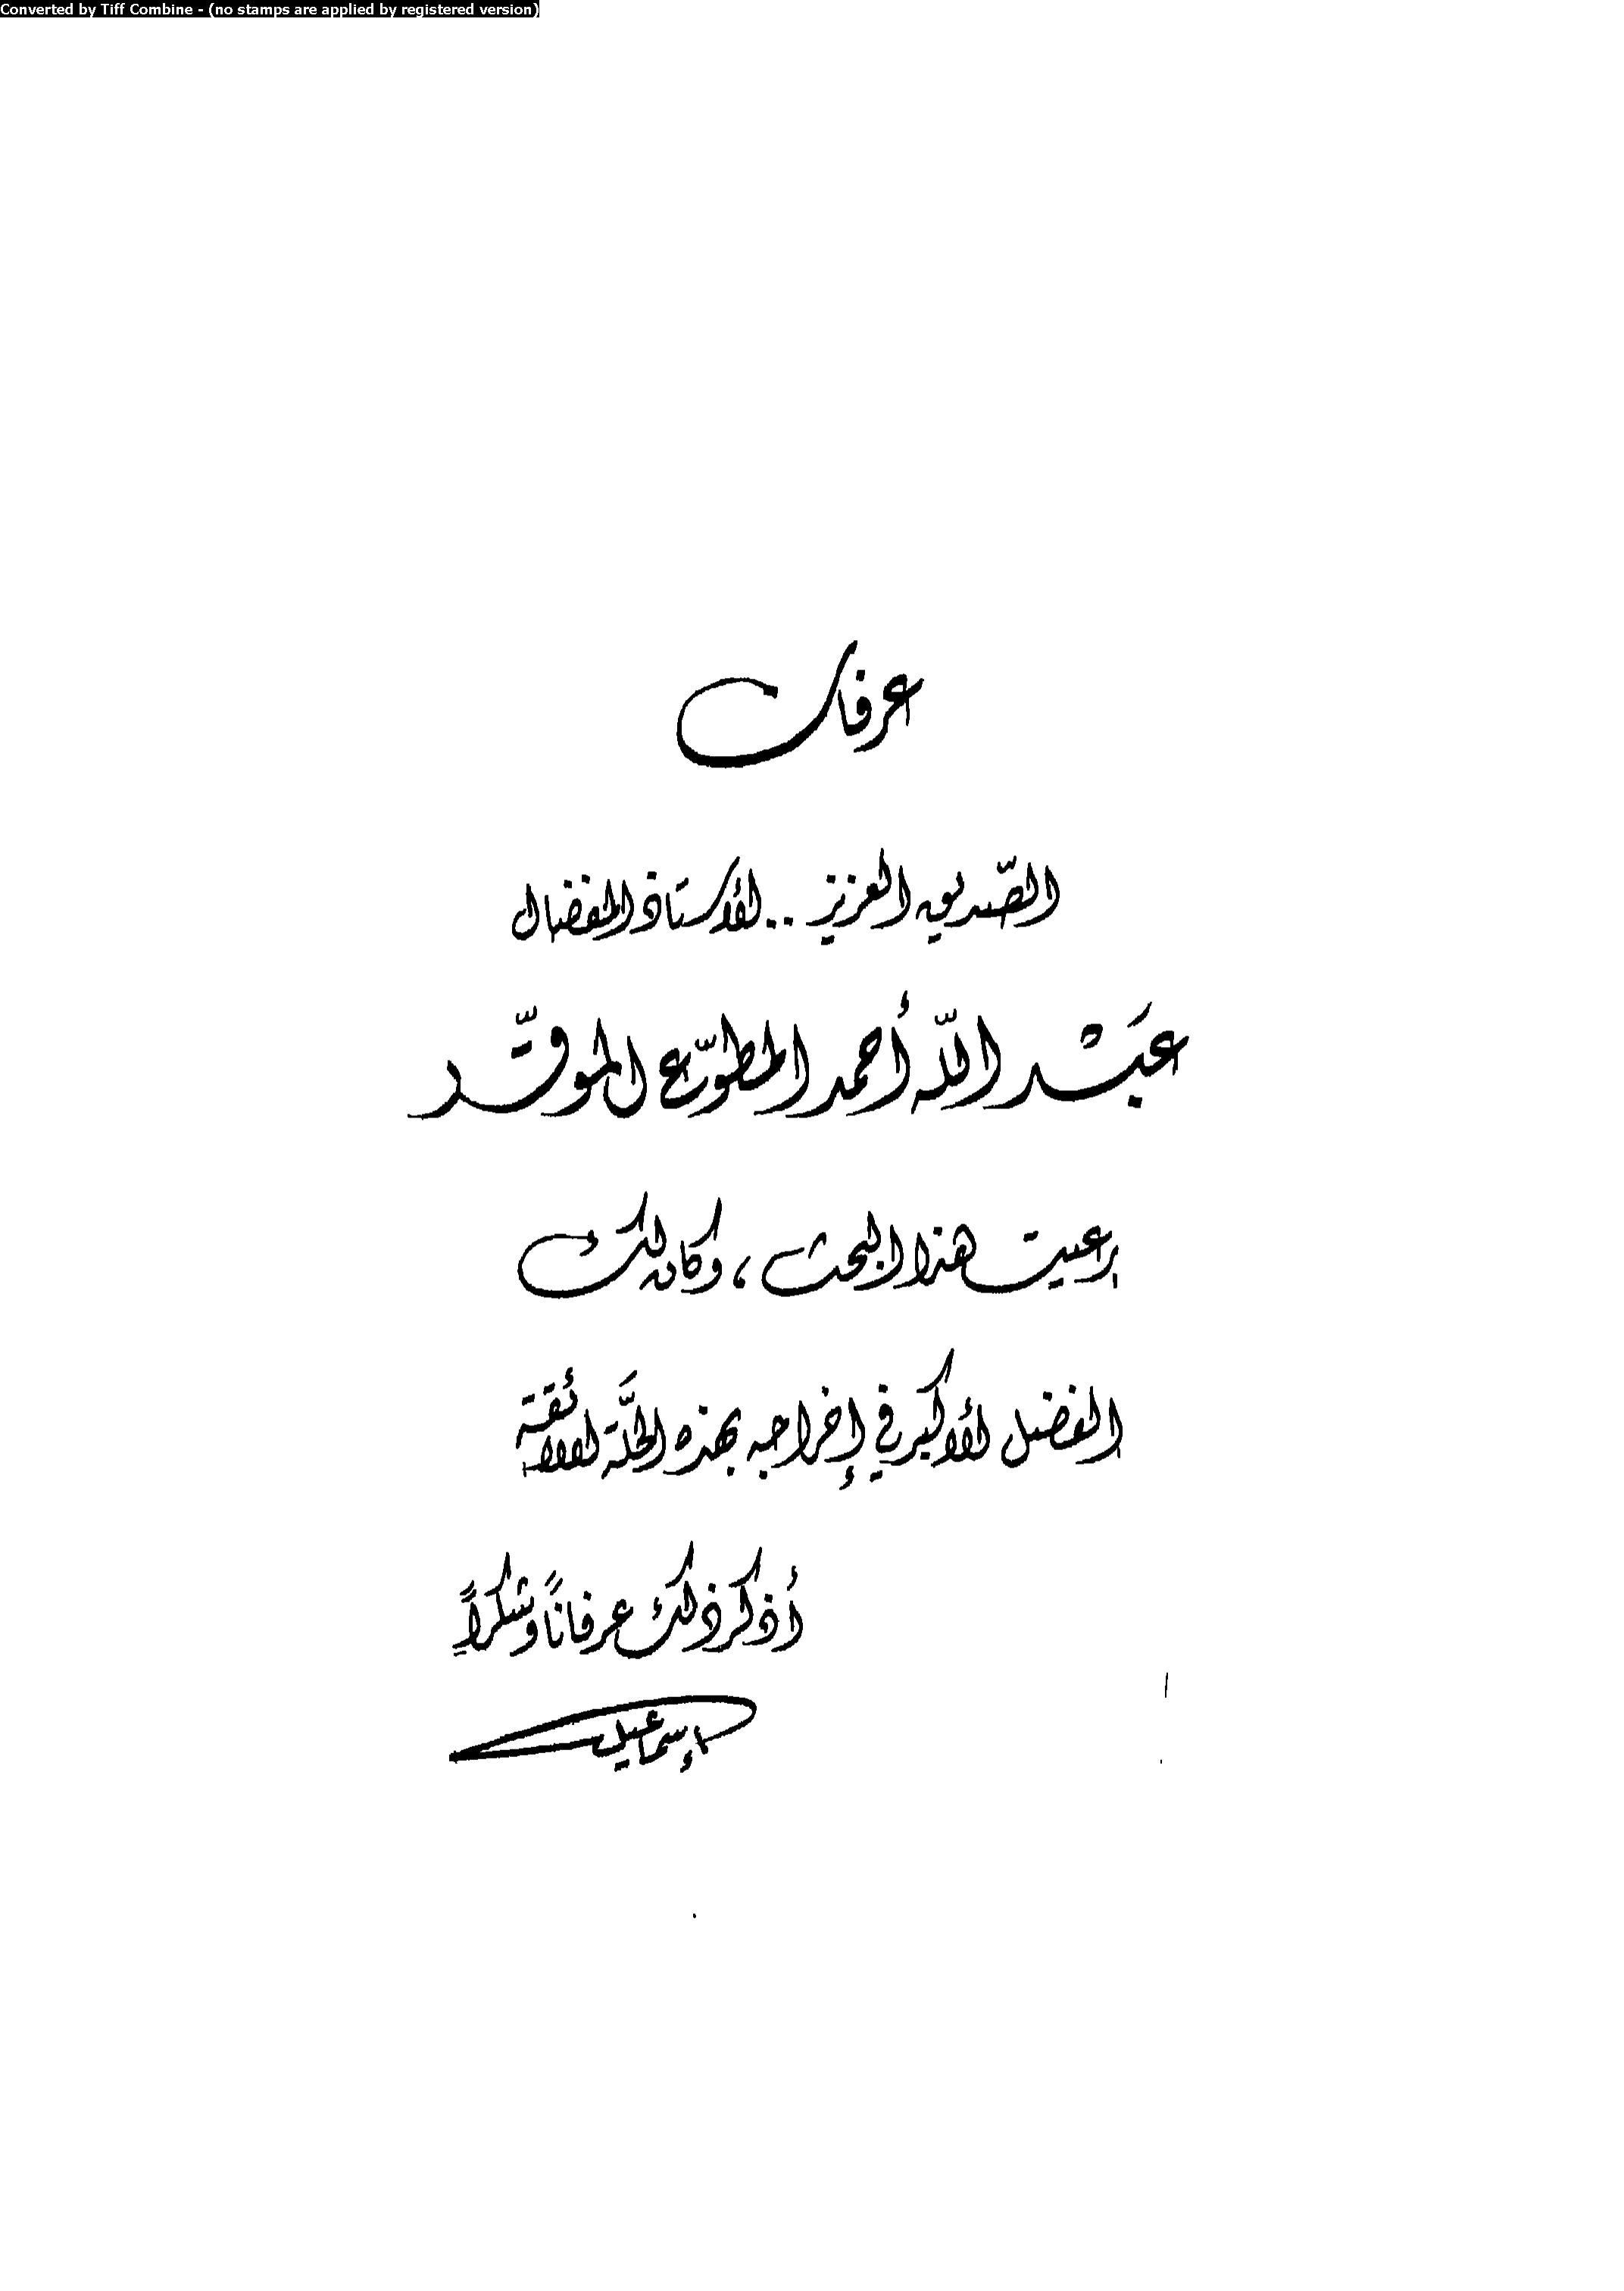 Converted by Tiff Combine - (no stamps are applied by registered version)
عرفان
الصّديق العزيز .. الأستاذ المفضال
عبد اللّه أحمد المطوّع الموقّر
رعيت هذا البحث ، وكان لك
الفضل الأكبر في إخراجه بهذه الحلَّة
أذكر ذلك عرفاناً وشكراً
إسماعيل